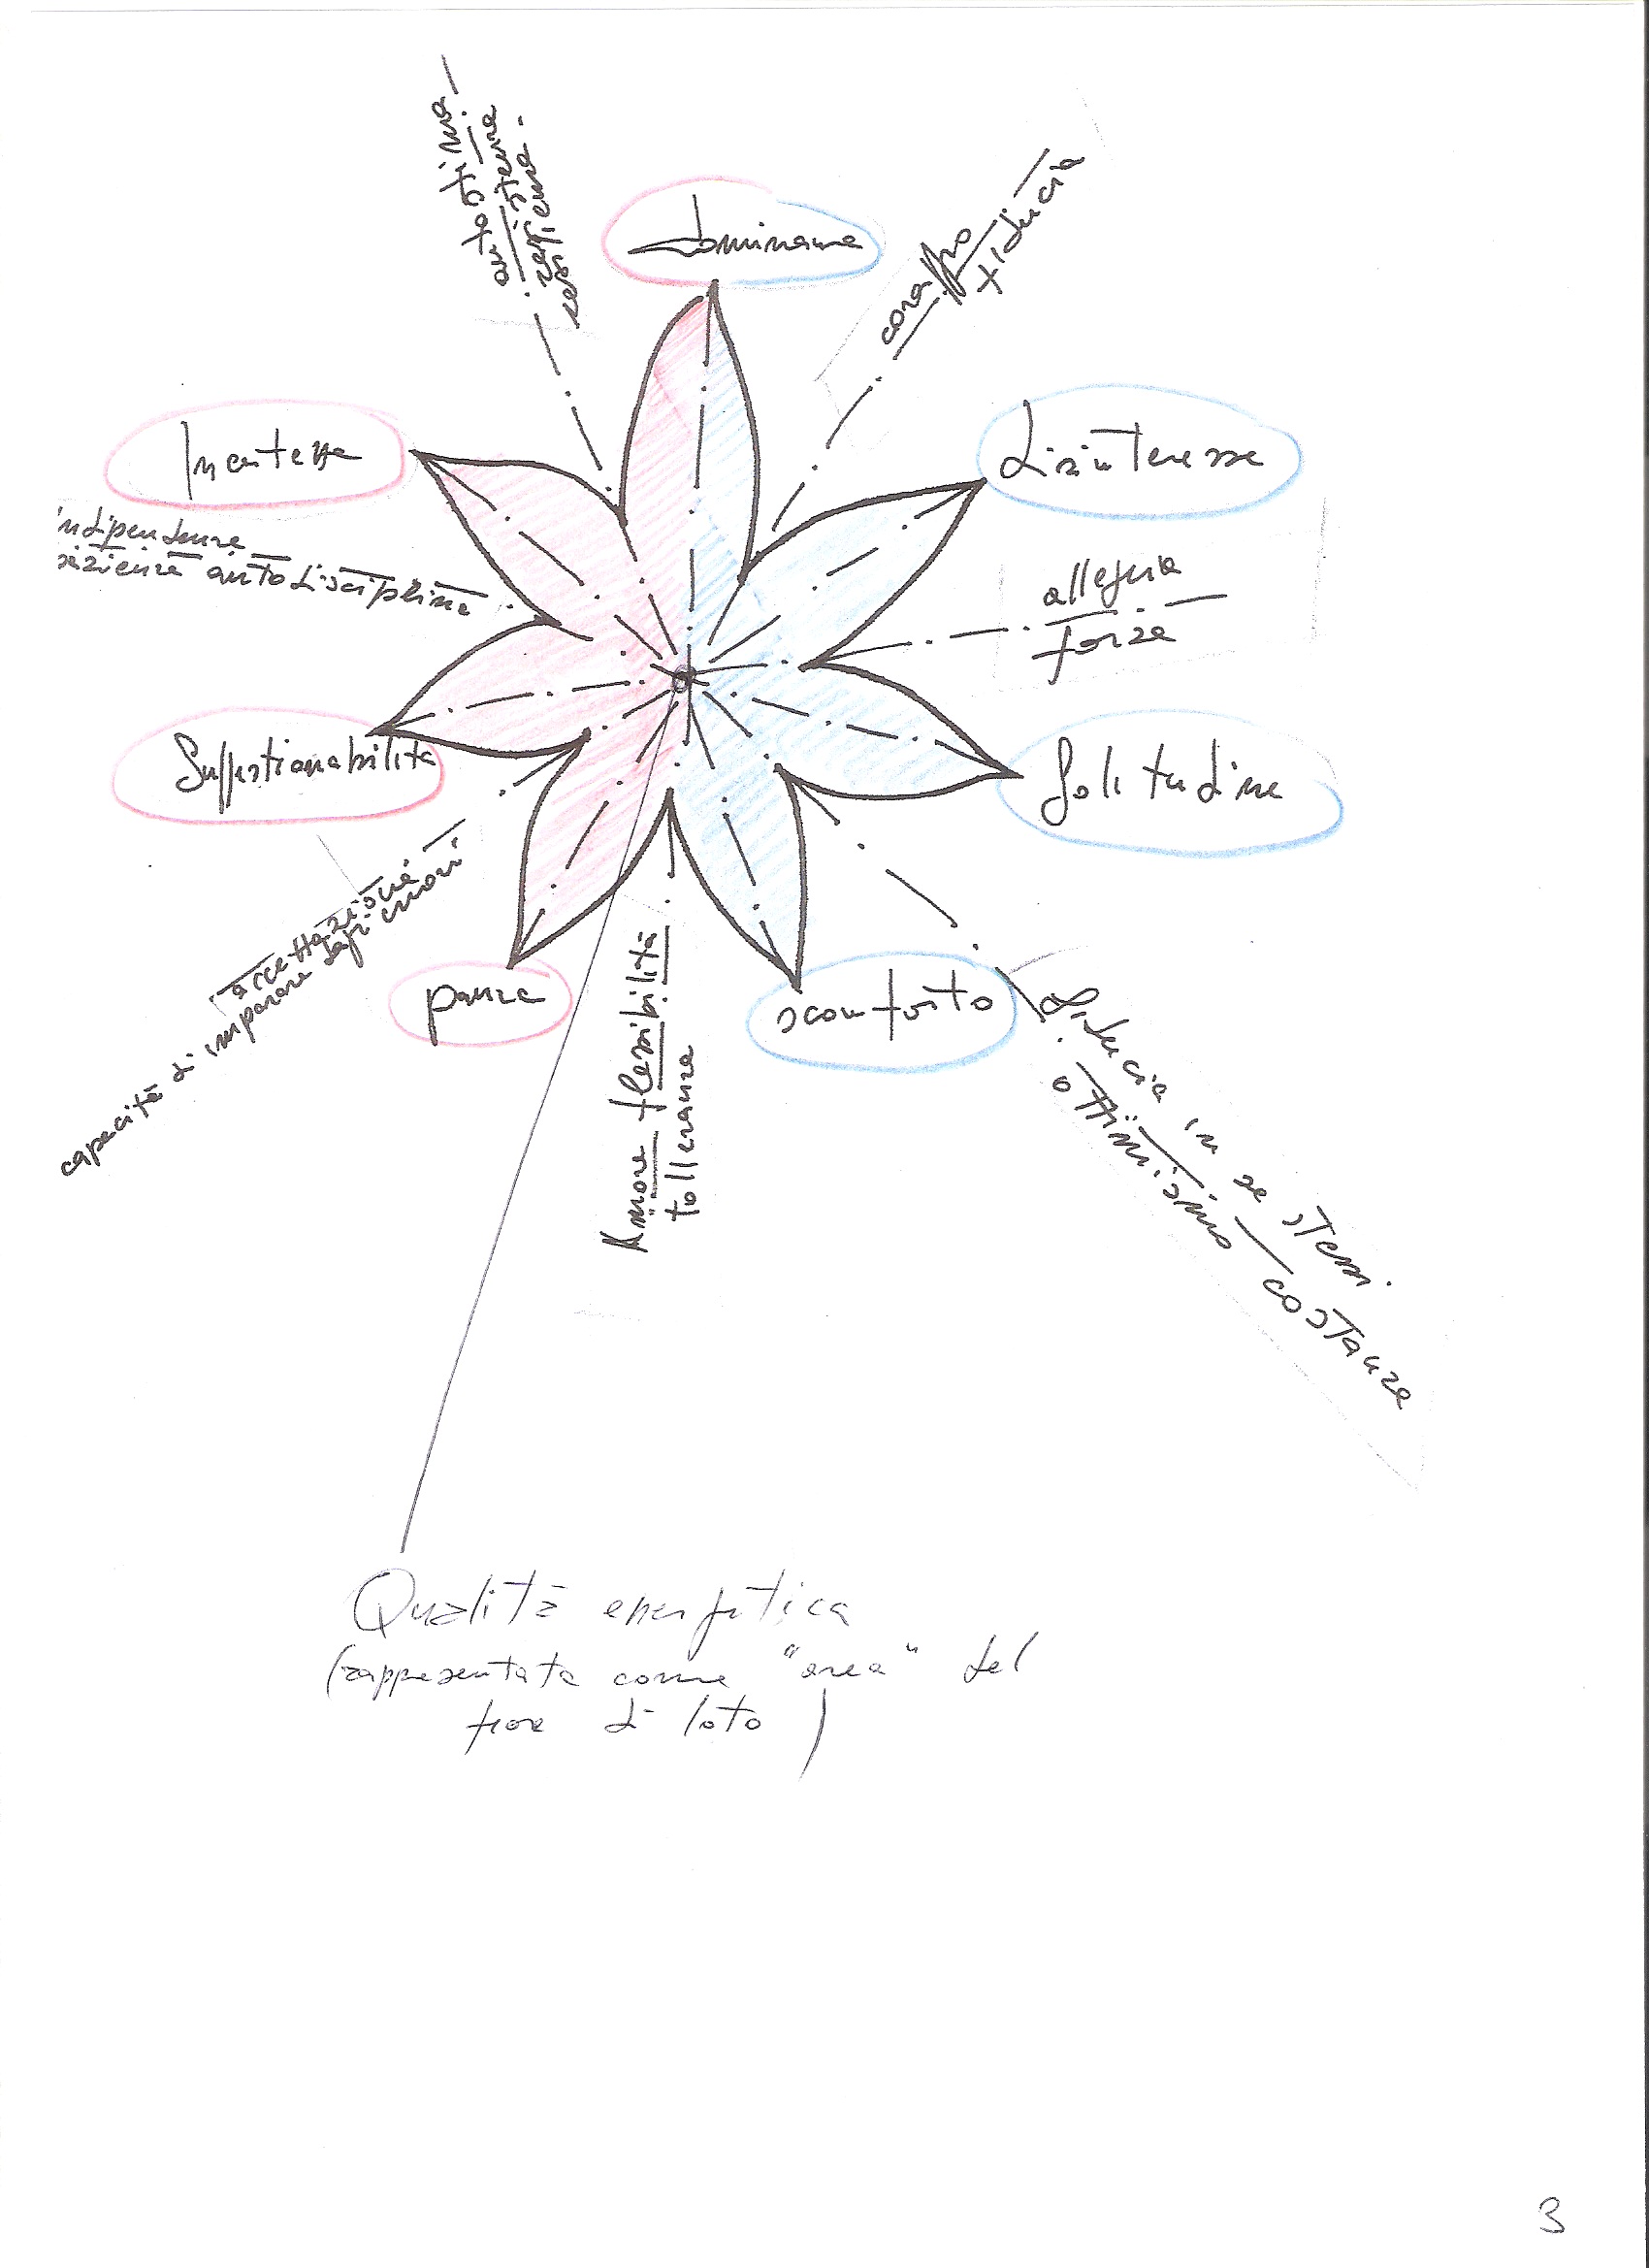 autostima
dominanza
coraggio
fiducia
Incertezza
disinteresse
indipendenza
autodisciplina
allegria
forza
Suggestionabilità
Solitudine
accettazione
capacità di imparare dagli errori
paura
sconforto
Amore flessibilità
tolleranza
fiducia in se stessi
ottimismo costanza
Qualità energetica
(rappresentata come "area" del
fiore di loto)
3